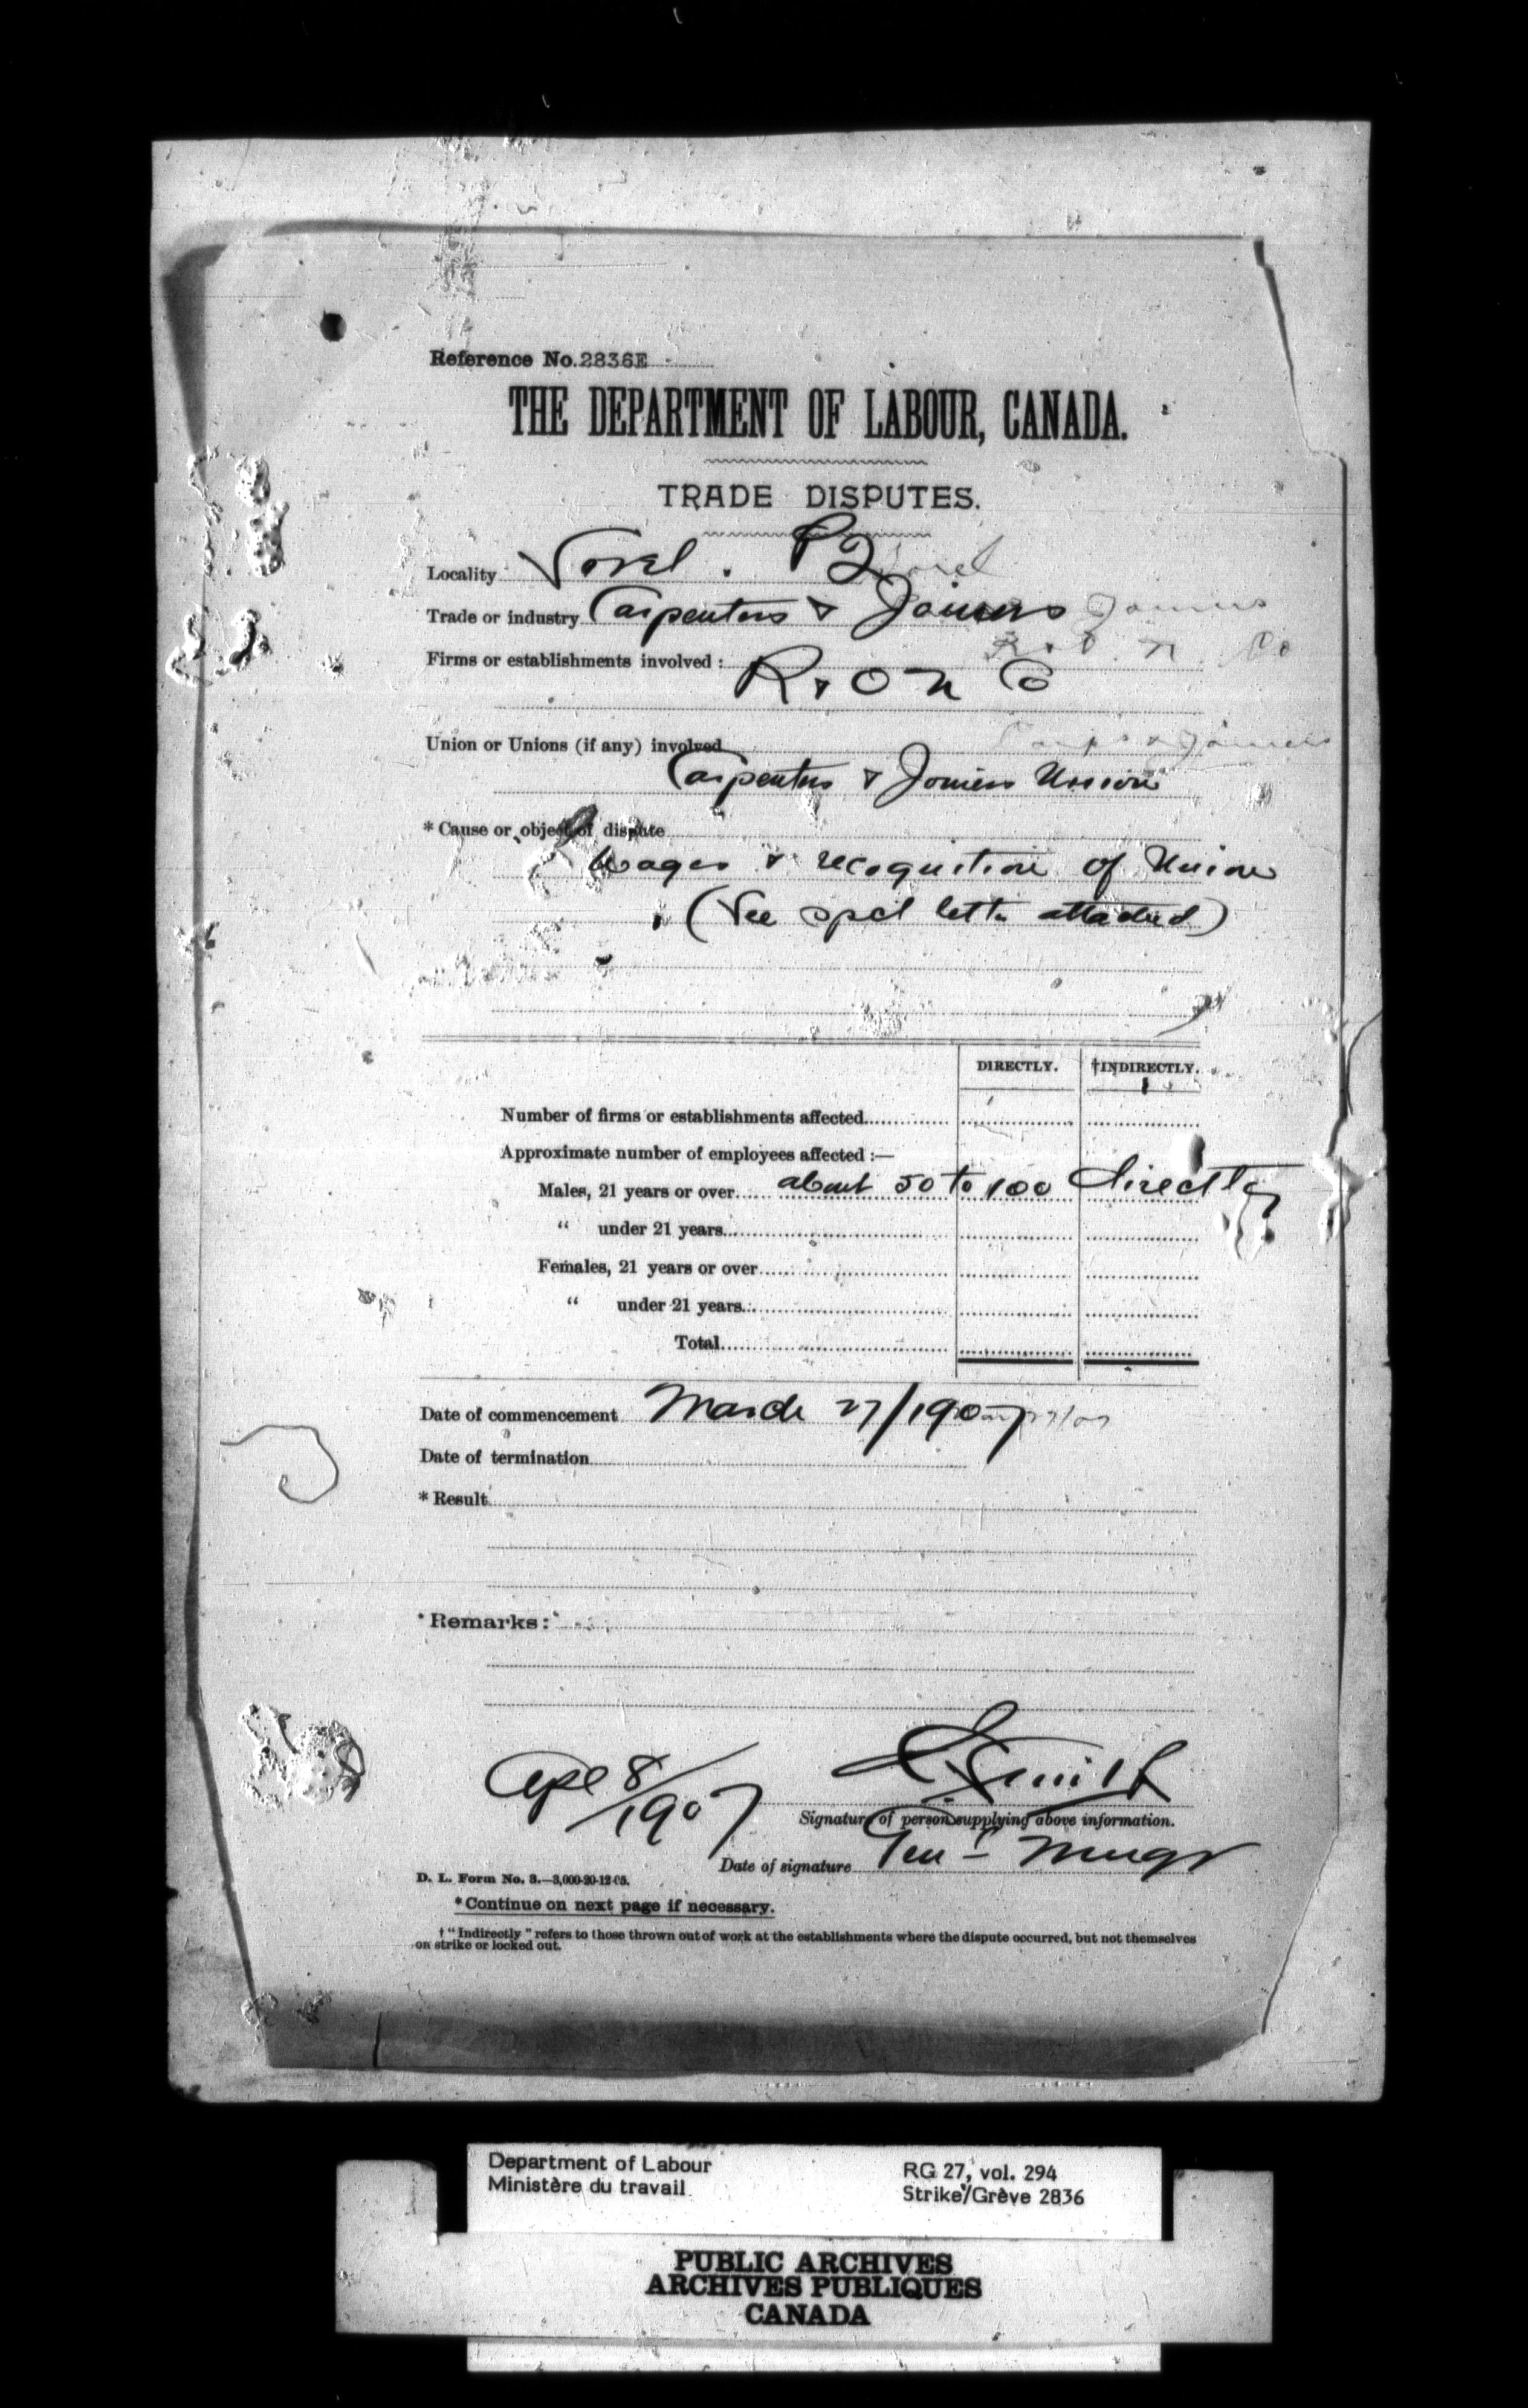 Reference No. 2836E
THE DEPARTMENT OF LABOUR, CANADA.
TRADE DISPUTES.
Locality Sorel. PQ Sorel
Trade or industry Carpenters & Joiners Joiners
Firms or establishments involved : R. O. N. Co
R & O N Co
Union or Unions (if any) involved Carps & Joiners
Carpenters & Joiners Union
* Cause or object of dispute
Wages & recognition of Union
(See spcl letter attached)
DIRECTLY. †INDIRECTLY.
Number of firms or establishments affected
Approximate number of employees affected :—
Males, 21 years or over about 50 to 100 directly
" under 21 years
Females, 21 years or over
" under 21 years
Total
Date of commencement March 27/1907
Date of termination
* Result
* Remarks :
Apl 8/1907
Smith
Signature of person supplying above information.
Date of signature Genl Mngr
D. L. Form No. 3.—3,000-20-12-05.
* Continue on next page if necessary.
† "Indirectly" refers to those thrown out of work at the establishments where the dispute occurred, but not themselves
on strike or locked out.
Department of Labour RG 27, vol. 294
Ministère du travail Strike/Grève 2836
PUBLIC ARCHIVES
ARCHIVES PUBLIQUES
CANADA